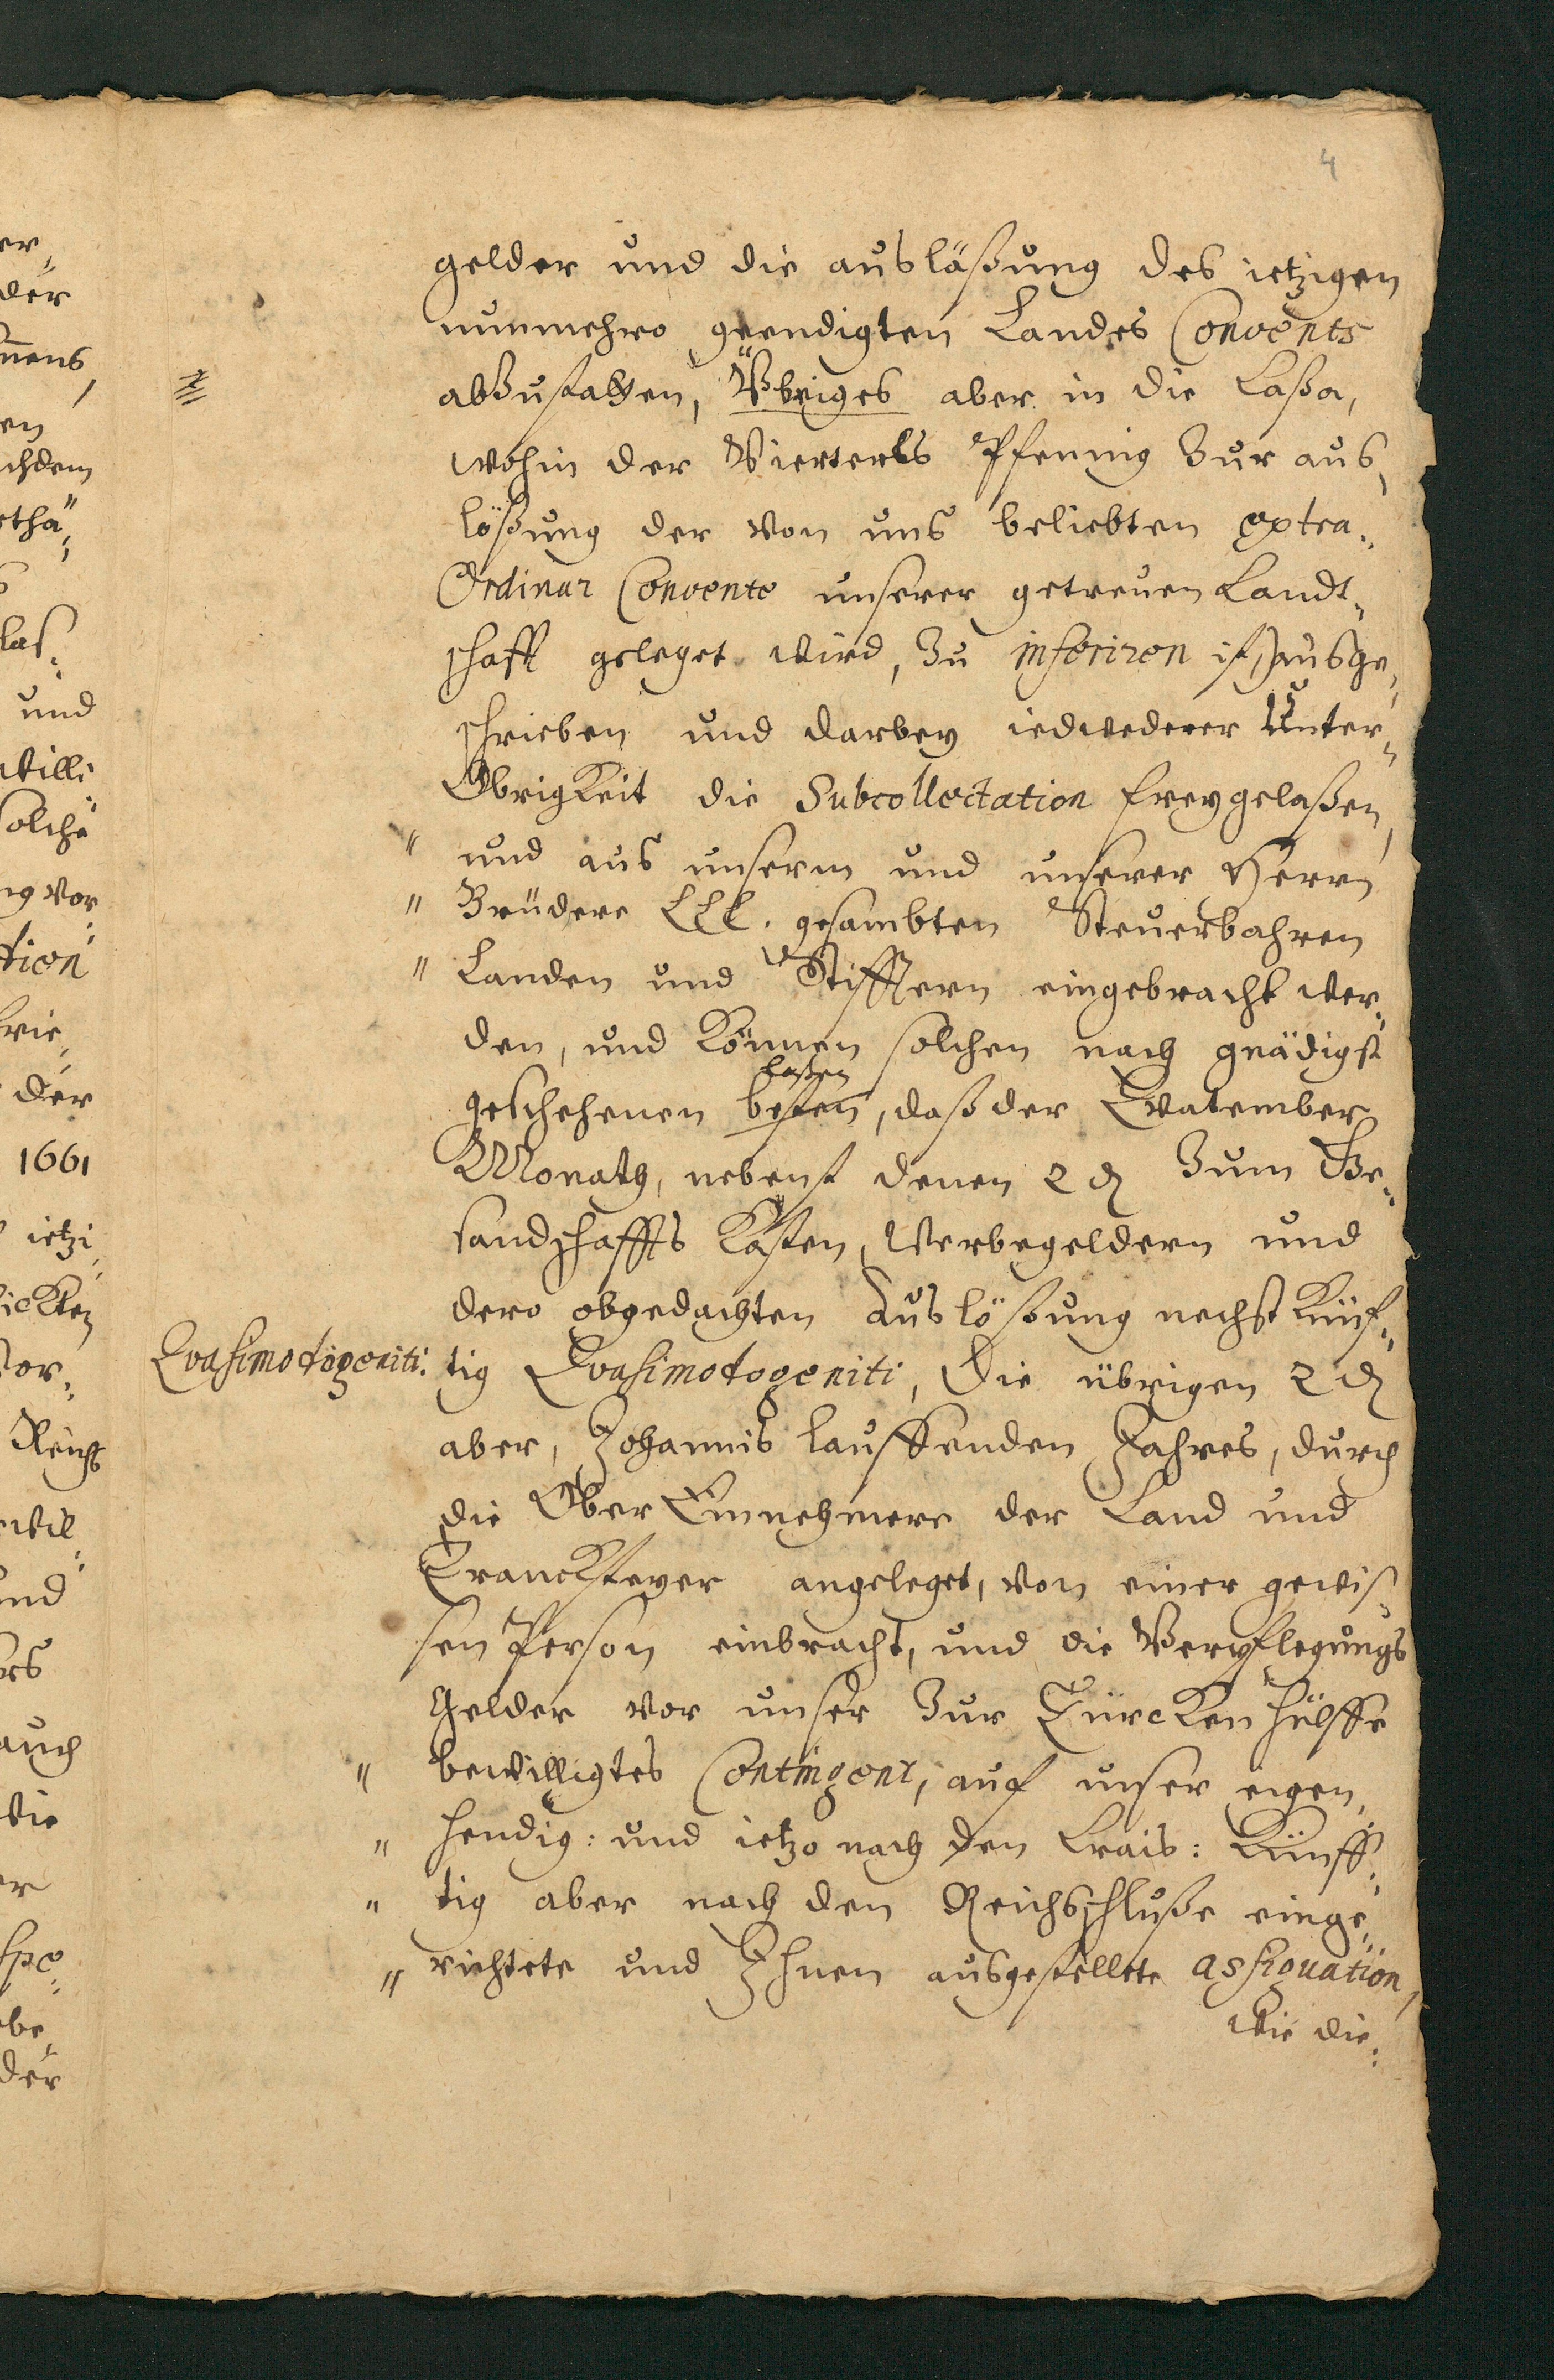 4
gelder und die auslößung des ietzigen
nunmehro geendigten Landes Convents
abzustatten, Übriges aber in die Cassa,
wohin der Vierteels Pfennig zur aus„
lößung der von uns beliebten extra„
Ordinar Convente unserer getreuen Landt„
schafft geleget wird, zu inseriren ist) ausge„
schrieben und darbey iedwederer Unter„
Obrigkeit die Subcollectation freygelaßen,
" und aus unserm und unserer Herrn
" Brüdere LLL. gesambten Steuerbahren
" Landen und Stifftern eingebracht wer„
den, und können solchen nach gnädigst
laßen
geschehenen, daß der Quatember
Monath, nebenst denen 2 ₰ zum Ge„
sandschaffts Kosten, Werbegeldern und
dero obgedachten Auslößung nechst künf„
Quasimodogeniti. tig Quasimodogeniti, Die übrigen 2 ₰
aber, Johannis lauffenden Jahres, durch
die Ober Einnehmere der Land und
Trancksteyer angeleget, von einer gewis„
sen Person einbracht, und die Verpflegungs
Gelder vor unser zur Türcken hülffe
" bewilligtes Contingent, auf unser eigen„
" hendig: und ietzo nach den Crais: künff„
" tig aber nach den Reichsschluße einge„
" richtete und Ihnen ausgestellete assignation,
wie die„
er„
der
mens,
en
chdem
ethä„
s
las„
und
willi
solche
ng vor
tion
krie„
der
1661
ietzi„
vor„
Reichs
wil„
und
es
auch
die
er
spe„
be„
der